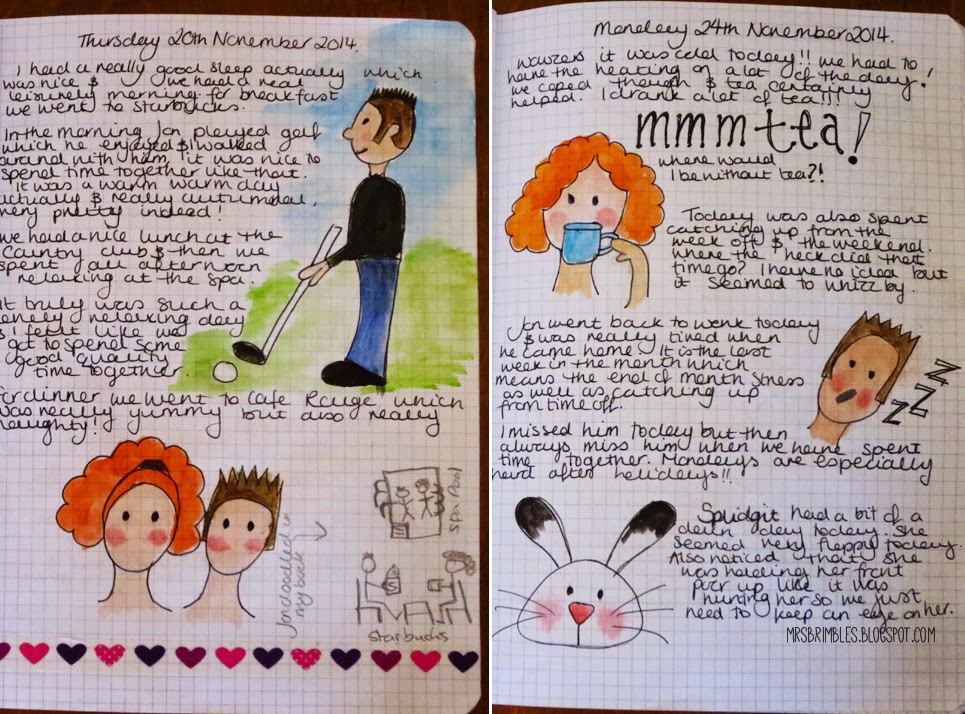 Thursday 20th November 2014.
I had a really good sleep actually which
was nice & we had a really
leisurely morning for breakfast
we went to Starbucks.
In the morning Jon played golf
which he enjoyed & I walked
around with him, it was nice to
spend time together like that.
It was a warm warm day
actually & really autumnal,
very pretty indeed!
we had a nice lunch at the
country club & then we
spent all afternoon
relaxing at the spa.
It truly was such a
lovely relaxing day
& I felt like we
got to spend some
good quality
time together.
For dinner we went to Cafe Rouge which
was really yummy but also really
naughty!
Jon doodled in
my book
Spa Pool
Starbucks
Monday 24th November 2014.
wowzers it was cold today!! we had to
have the heating on a lot of the day!
we coped though & tea certainly
helped. I drank a lot of tea!!!
mmm tea!
where would
I be without tea?!
Today was also spent
catching up from the
week off & the weekend.
where the heck did that
time go? I have no idea but
it seemed to whizz by.
Jon went back to work today
& was really tired when
he came home. It is the last
week in the month which
means the end of month stress
as well as catching up
from time off.
zzz
I missed him today but then
always miss him when we have spent
time together. Mondays are especially
hard after holidays!!
Splidgit had a bit of a
down day today. She
seemed very floppy today.
Also noticed that she
was holding her front
paw up like it was
hurting her so we just
need to keep an eye on her.
MRSBRIMBLES.BLOGSPOT.COM